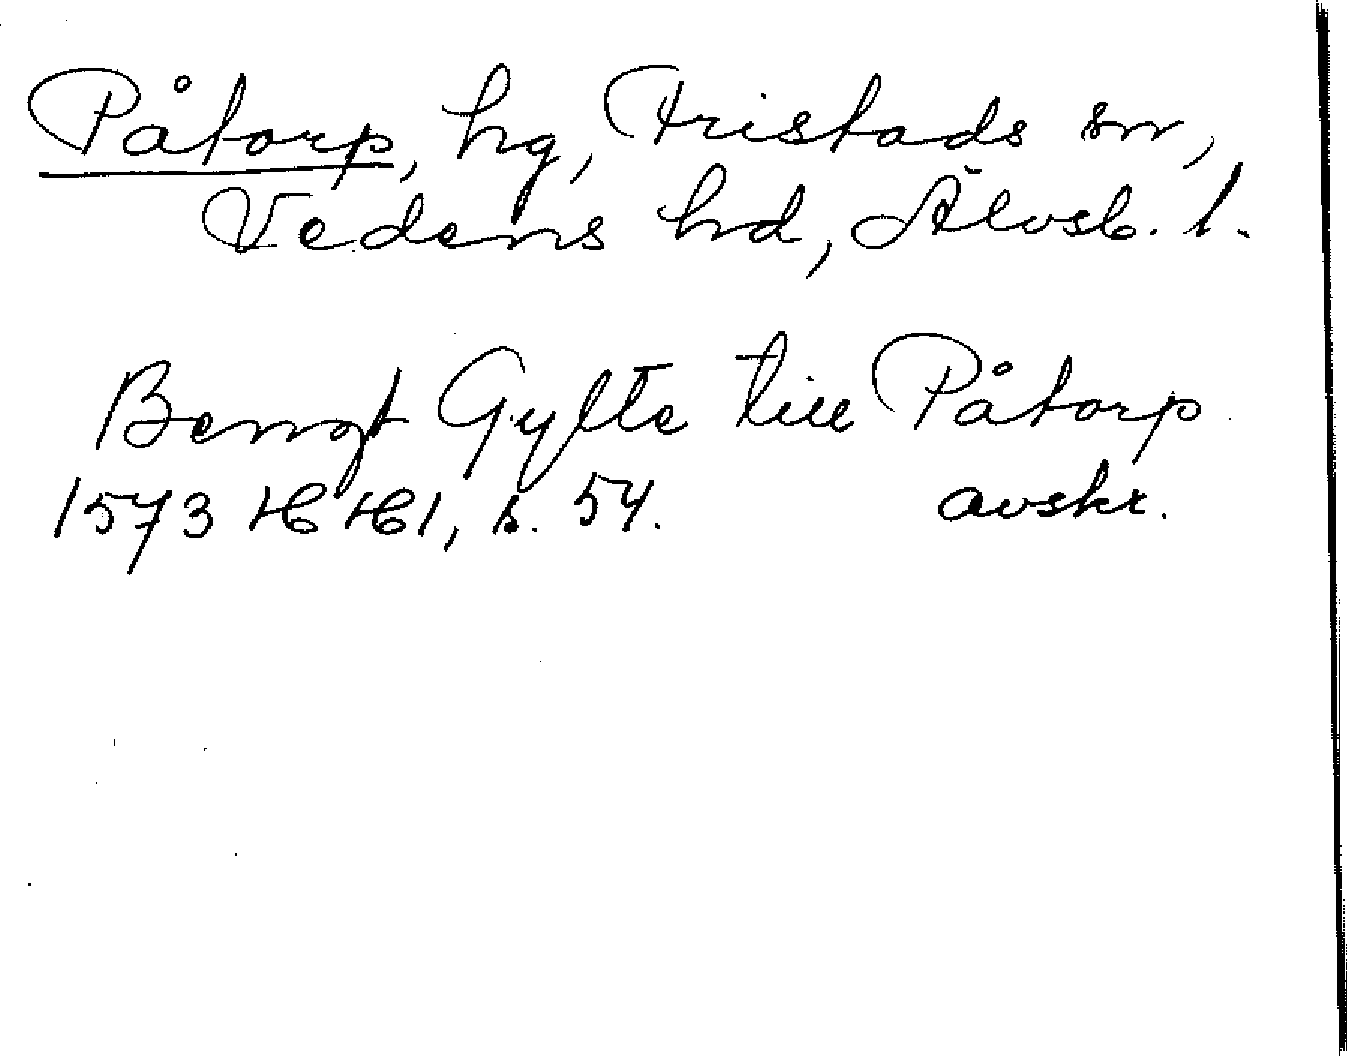 Påtorp, hg, Fristads sn,
Vedens hd, Älvsb. l.
Bengt Gylte till Påtorp
1573 HH1, s. 54. avskr.